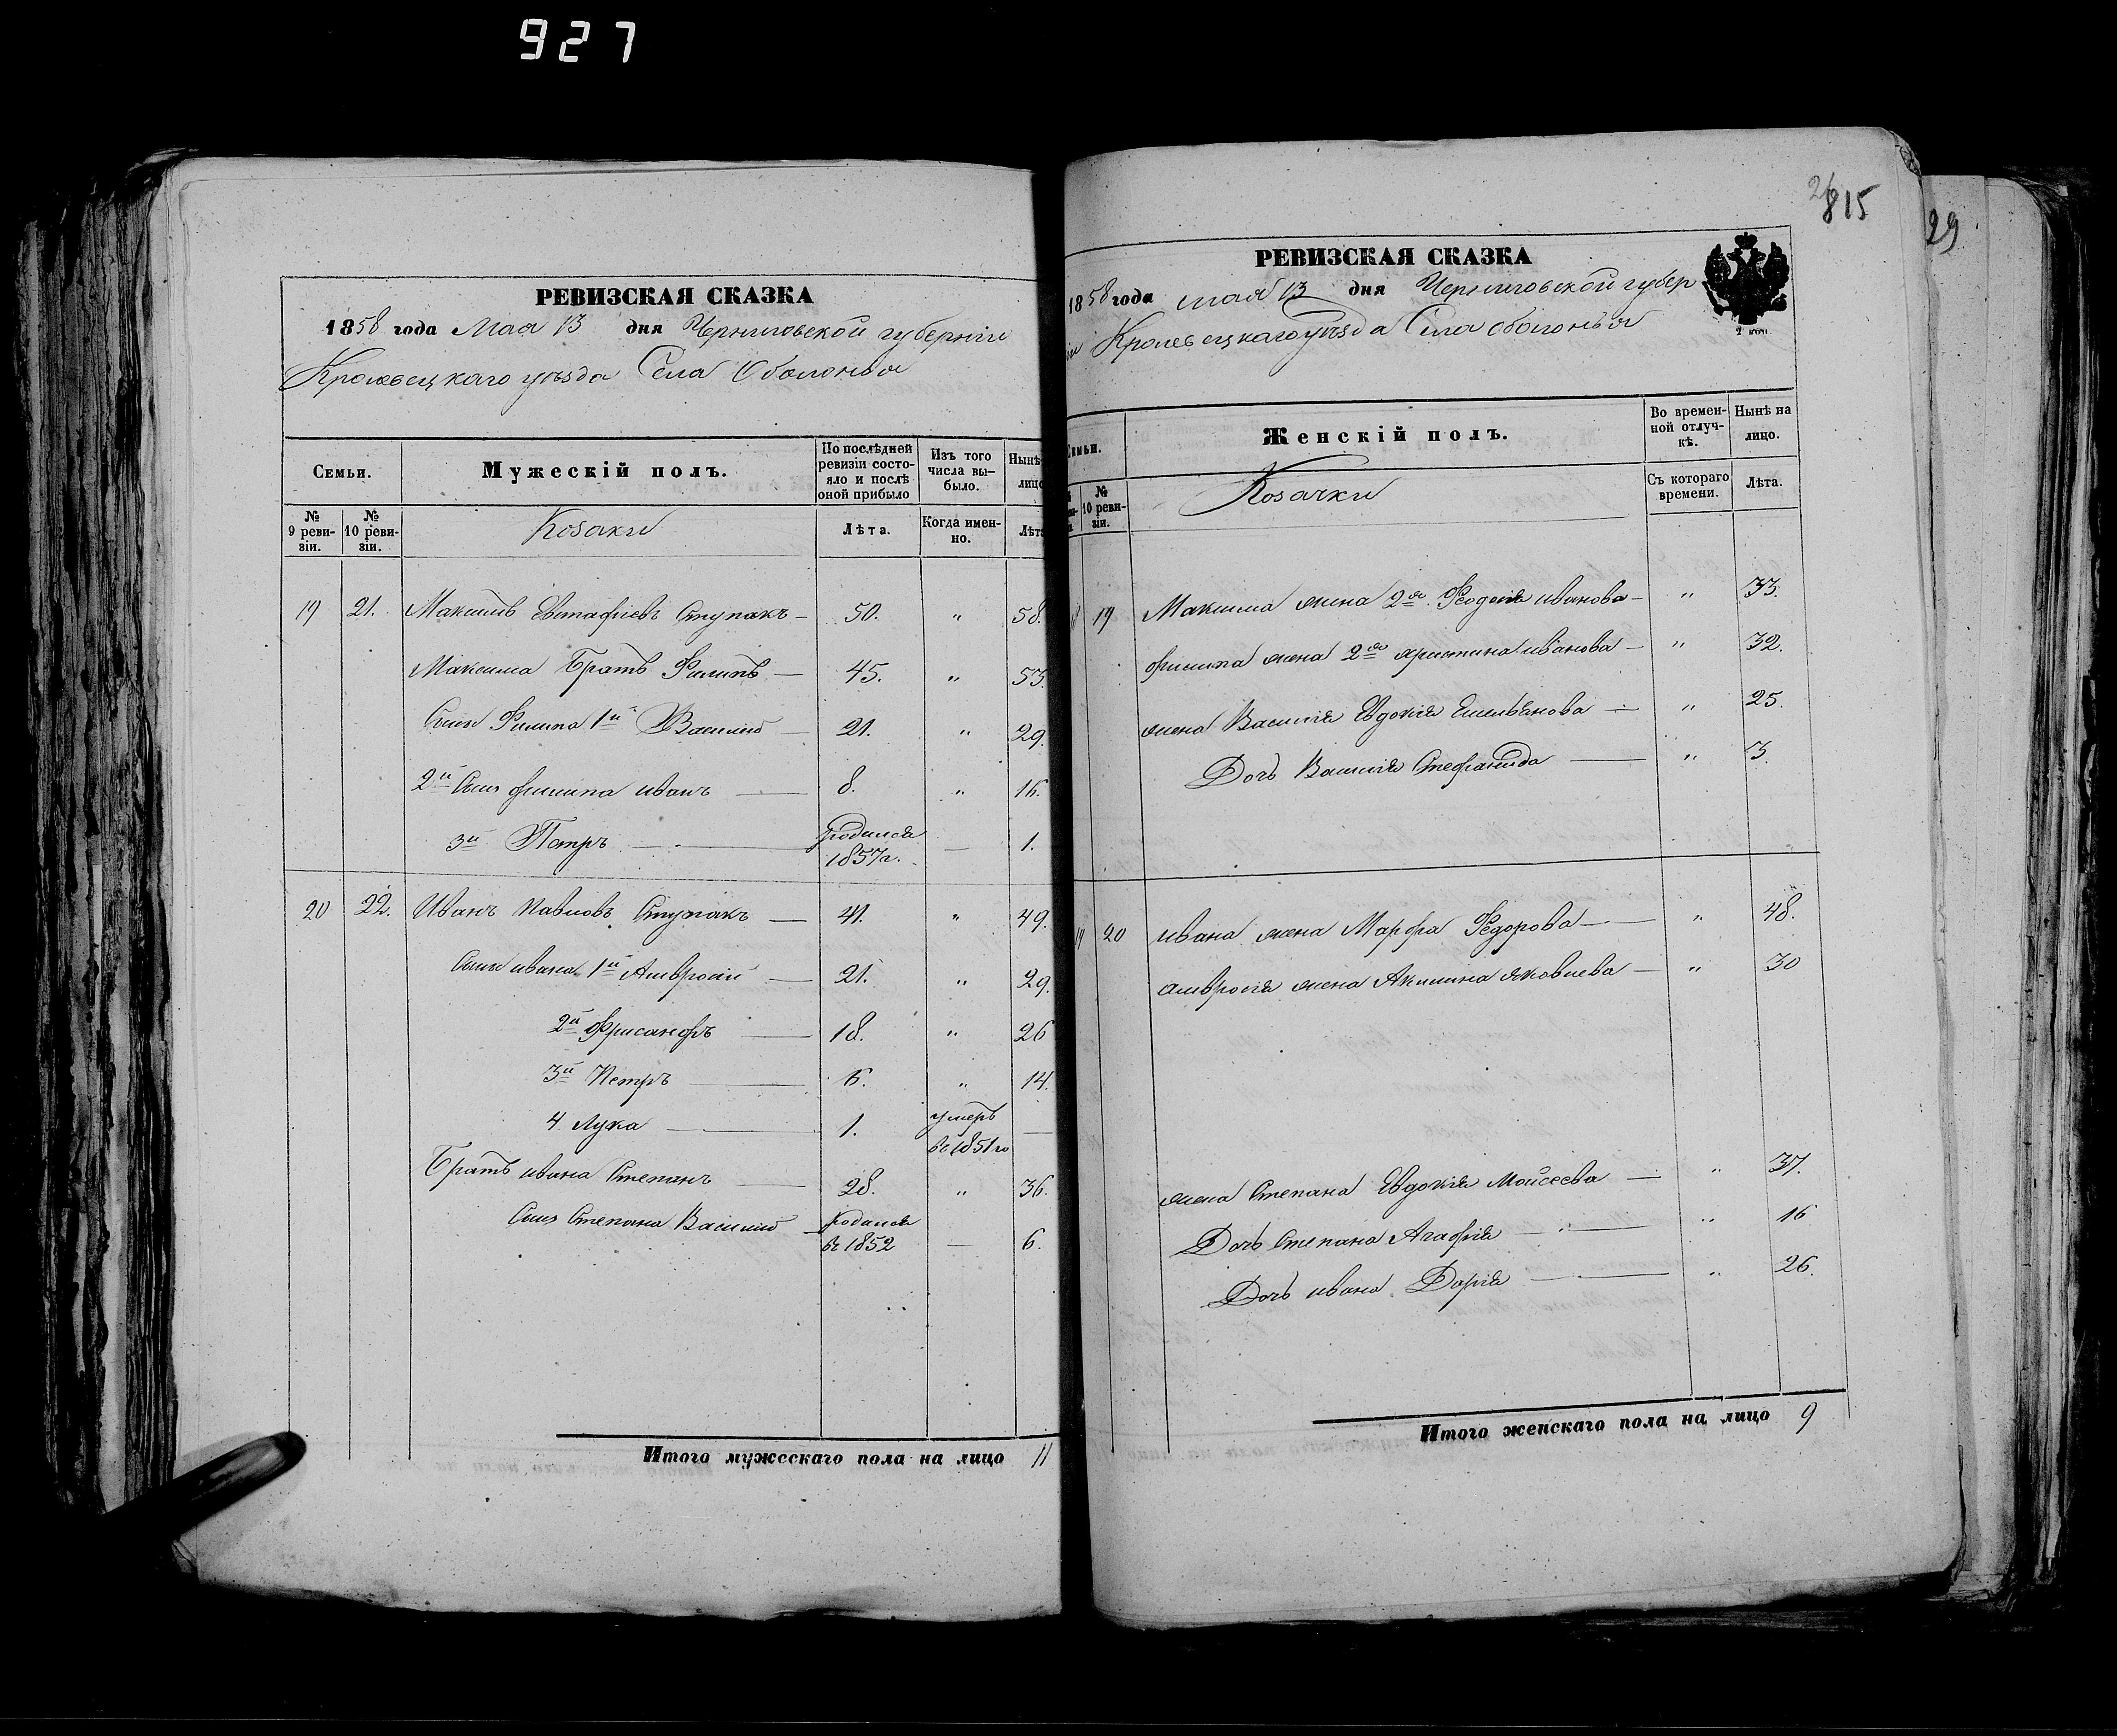 927
РЕВИЗСКАЯ СКАЗКА
1858 года Мая 13 дня Черниговской губерніи
Кролевецкаго уѣзда Села Оболонья
Семьи.
Мужескій полъ.
По послѣдней ревизіи состо-
яло и послѣ оной прибыло
Изъ того числа вы-
было.
Нынѣ
лицо
№ 9 реви-
зіи.
№ 10 реви-
зіи.
Козаки
Лѣта.
Когда имен-
но.
Лѣта
19 21. Максимъ Евтафіевъ Ступакъ — 50. " 58.
Максима Братъ Филипъ — 45. " 53.
Сынъ Филипа 1й Василий — 21. " 29.
2й Сынъ филипа иванъ — 8. " 16.
3й Петръ — родился 1857г. — 1.
20 22. Иванъ Павловъ Ступакъ — 41. " 49.
Сынъ ивана 1й Амвросий — 21. " 29.
2й — 18. " 26
3й Петръ — 6. " 14.
4 Лука — 1. умеръ въ 1851го —
Братъ ивана Степанъ — 28. " 36.
Сынъ Степана Василий — родился въ 1852 — 6.
Итого мужескаго пола на лицо 11
815
29
РЕВИЗСКАЯ СКАЗКА
1858 года мая 13 дня Черниговской губер
іи Кролевецкаго уѣзда Села Оболонья
2 коп.
Семьи.
Женскій полъ.
Во времен-
ной отлуч-
кѣ.
Нынѣ на
лицо.
№ 10 реви-
зіи.
Козачки
Съ котораго
времени.
Лѣта.
19 Максима жена 2я Феодосия иванова — " 33.
филипа жена 2я христина иванова — " 32.
жена Василия Евдокия Емельянова — " 25.
Дочь Василия Стефанида — " 3.
19 20 ивана жена Марфа Федорова — " 48.
амвросия жена Акилина яковлева — " 30
жена Степана Евдокия Моисеева — " 37.
Дочь Степана Агафия — " 16
Дочь ивана Дария — " 26.
Итого женскаго пола на лицо 9